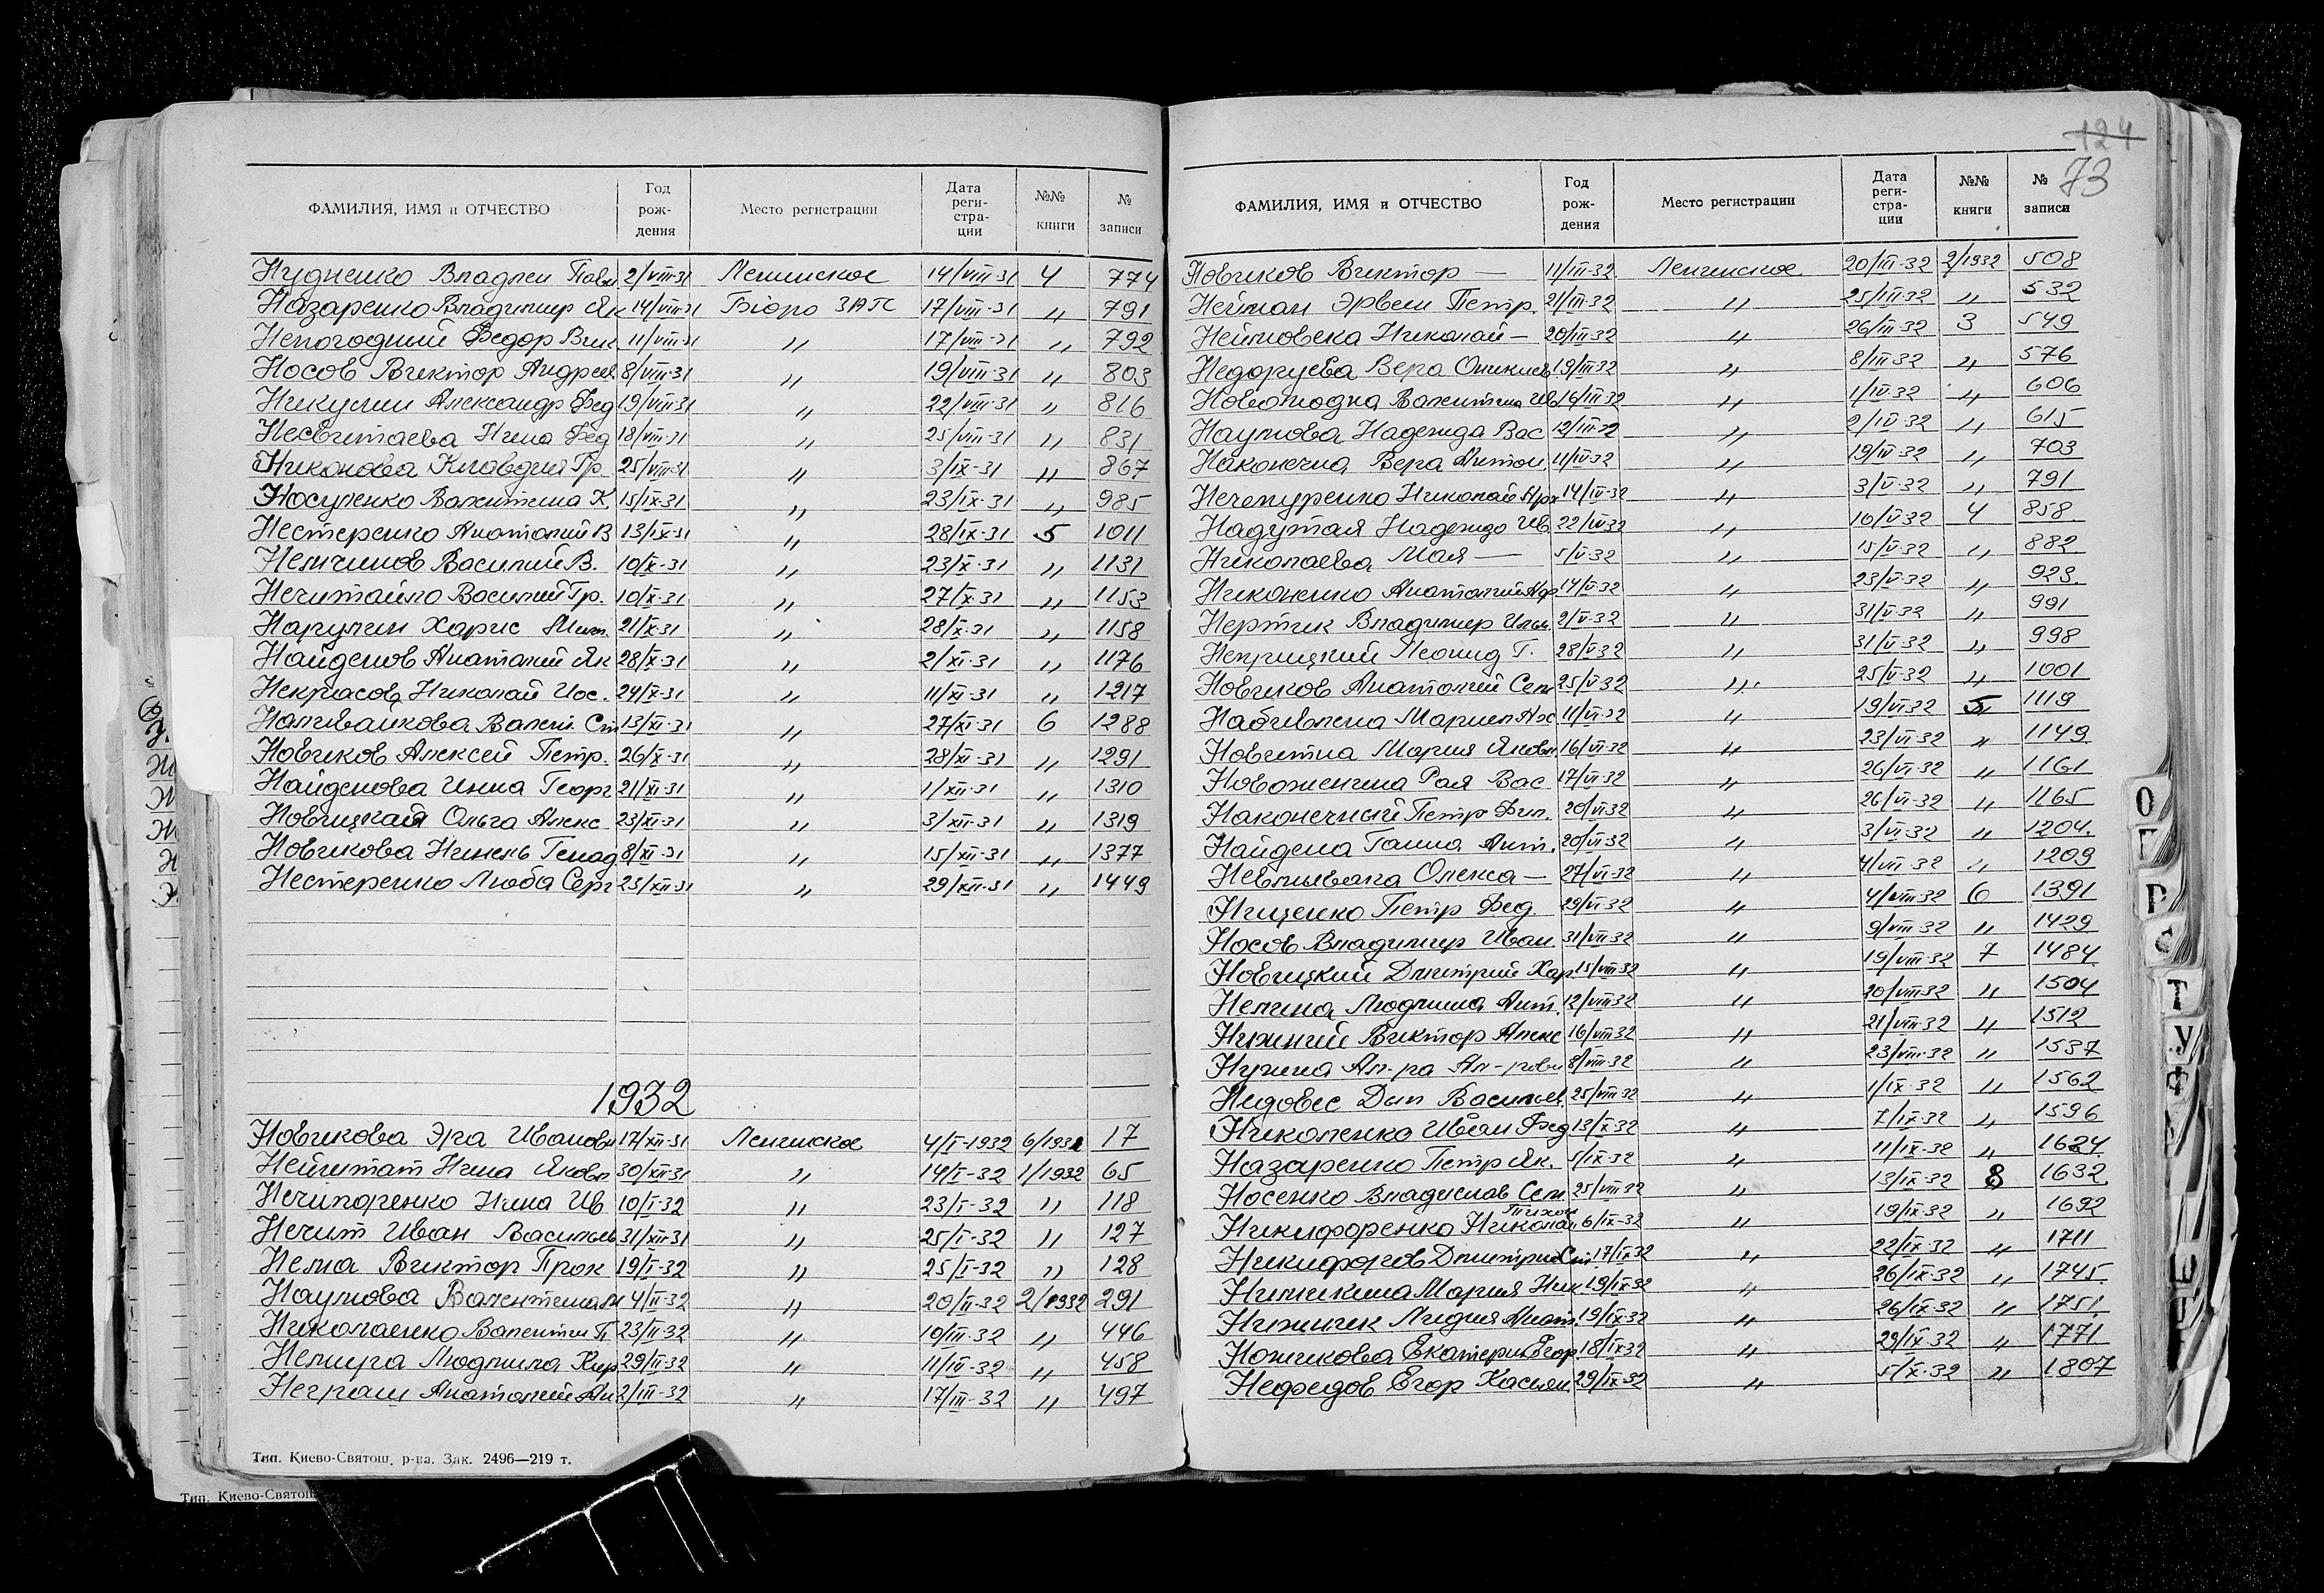 ФАМИЛИЯ, ИМЯ и ОТЧЕСТВО Год рождения Место регистрации Дата регистрации №№ книги № записи
Нудненко Владлен Павл 2/VIII-31 Ленинское 14/VIII-31 4 774
Назаренко Владимир Як 14/VIII-31 Бюро ЗАГС 17/VIII-31 " 791
Непогодний Федор Вик 11/VIII-31 " 17/VIII-31 " 792
Носов Виктор Андреев 8/VIII-31 " 19/VIII-31 " 803
Никулин Александр Фед 19/VIII-31 " 22/VIII-31 " 816
Несвитаева Нина Фед 18/VIII-31 " 25/VIII-31 " 831
Никонова Клавдия Гр. 25/VIII-31 " 3/IX-31 " 867
Носуленко Валентина К. 15/IX-31 " 23/IX-31 " 985
Нестеренко Анатолий В 13/IX-31 " 28/IX-31 5 1011
Немчинов Василий В. 10/X-31 " 23/X-31 " 1131
Нечитайло Василий Гр. 10/X-31 " 27/X-31 " 1153
Нарулин Харис 21/X-31 " 28/X-31 " 1158
Найденов Анатолий Як 28/X-31 " 2/XI-31 " 1176
Некрасов Николай Иос. 24/X-31 " 11/XI-31 " 1217
Наливайкова Вален. Ст 13/XI-31 " 27/XI-31 6 1288
Новиков Алексей Петр. 26/X-31 " 28/XI-31 " 1291
Найденова Инна Георг 21/XI-31 " 1/XII-31 " 1310
Новицкая Ольга Алекс 23/XI-31 " 3/XII-31 " 1319
Новикова Нинель Генад 8/XI-31 " 15/XII-31 " 1377
Нестеренко Люба Серг 23/XII-31 " 29/XII-31 " 1449
1932
Новикова Эра Ивановн 17/XII-31 Ленинское 4/I-1932 6/1931 17
Нейштат Нина Яковл 30/XII-31 " 14/I-32 1/1932 65
Нечипоренко Нина Ив 10/I-32 " 23/I-32 " 118
Нечит Иван Васильев 31/XII-31 " 25/I-32 " 127
Нема Виктор Прок 19/I-32 " 25/I-32 " 128
Наумова Валентина 4/II-32 " 20/II-32 2/1932 291
Николаенко Валентин П 23/II-32 " 10/III-32 " 446
Немира Людмила Кир 29/II-32 " 11/III-32 " 458
Неграш Анатолий Ан 2/III-32 " 17/III-32 " 497
Тип. Киево-Святош. р-на. Зак. 2496—219 т.
Тип. Киево-Святош
124
73
ФАМИЛИЯ, ИМЯ и ОТЧЕСТВО Год рождения Место регистрации Дата регистрации №№ книги № записи
Новиков Виктор — 11/III-32 Ленинское 20/III-32 2/1932 508
Нейман Эрвен Петр. 21/III-32 " 25/III-32 " 532
Неймовека Николай — 20/III-32 " 26/III-32 3 549
Недоруева Вера 19/III-32 " 8/III-32 " 576
Новоходна Валентина Ив 16/III-32 " 1/IV-32 " 606
Наумова Надежда Вас 12/III-32 " 2/IV-32 " 615
Наконечна Вера Антон. 11/IV-32 " 19/IV-32 " 703
Нечепуренко Николай 14/IV-32 " 3/V-32 " 791
Надутая Надежда Ив 22/IV-32 " 10/V-32 4 858
Николаева Мая — 5/V-32 " 15/V-32 " 882
Никоненко Анатолий 14/V-32 " 23/V-32 " 923
Нертик Владимир Ильи. 2/V-32 " 31/V-32 " 991
Неприцкий Леонид Г. 28/V-32 " 31/V-32 " 998
Новиков Анатолий Сем 25/V-32 " 25/V-32 " 1001
11/VI-32 " 19/VI-32 5 1119
Новитна Мария Яковл. 16/VI-32 " 23/VI-32 " 1149
Новоженина Рая Вас 17/VI-32 " 26/VI-32 " 1161
Наконечный Петр Фил. 20/VI-32 " 26/VI-32 " 1165
Найдена Ганна Ант. 20/VI-32 " 3/VI-32 " 1204
Невмывана Олекса — 27/VI-32 " 4/VII-32 " 1209
Нищенко Петр Фед. 29/VI-32 " 4/VIII-32 6 1391
Носов Владимир Иван 31/VII-32 " 9/VIII-32 " 1429
Новицкий Дмитрий Хар 15/VIII-32 " 19/VIII-32 7 1484
Немина Людмила Ант. 12/VIII-32 " 20/VIII-32 " 1504
Нижний Виктор Алекс 16/VIII-32 " 21/VIII-32 " 1512
Нужна Ал-ра Ал-ровн 8/VIII-32 " 23/VIII-32 " 1537
Недовес Василь 25/VIII-32 " 1/IX-32 " 1562
Николенко Иван Фед 13/X-32 " 7/IX-32 " 1596
Назаренко Петр Як. 5/IX-32 " 11/IX-32 " 1624
Носенко Владислав Сем. 25/VIII-32 " 13/IX-32 8 1632
Никифоренко Николай Тихон 6/IX-32 " 19/IX-32 " 1692
Никифоров Дмитрий Ст 17/IX-32 " 22/IX-32 " 1711
Мария Ник 19/IX-32 " 26/IX-32 " 1745
Нижник Лидия Анат. 19/IX-32 " 26/IX-32 " 1751
Ножикова Екатерин Егор 18/IX-32 " 29/IX-32 " 1771
Нефедов Егор Касьян. 29/IX-32 " 5/X-32 " 1807
О
Р
С
Т
У
Ф